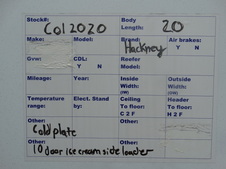 Stock#: Col 2020 Body Length: 20
Make: Model: Brand: Hackney Air brakes: Y N
Gvw: CDL: Y N Reefer Model:
Mileage: Year: Inside Width: (W) Outside Width: (GW)
Temperature range: Elect. Stand by: Ceiling To floor: C 2 F Header To floor: H 2 F
Other: Cold plate Other: Other:
Other:
10 door ice cream side loader